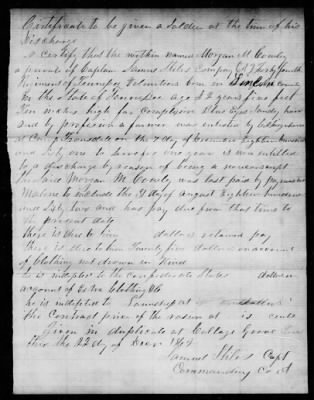 Certificate to be given a Soldier at the time of his
Discharge
I certify that the within named Morgan M
a private of Captain Samuel Stiles Company
Regiment of Tennessee Volunteers born in Lincoln County
in the State of Tennessee aged years five feet
Ten inches high fair complexion Blue Eyes hair
and by profession a farmer was enlisted by
at Camp Trousdale on the 7 day of Eighteen hundred
and Sixty one to Serve one year is now entitled
to a discharge by reason of being a nonconscript
The said Morgan M was last paid by
Malone to include the 31 day of August Eighteen hundred
and Sixty two and has pay due from that time to
the present date
there is due to him dollars retained pay
There is due to him Twenty five dollars on account
of Clothing not drawn in Kind
he is indebted to the confederate States dollars on
account of Extra Clothing &c
he is indebted to at dollars
the Contract price of the ration at is cents
Given in duplicate at College Grove
this the 22 day of 186
Samuel Stiles Capt
Commanding Co